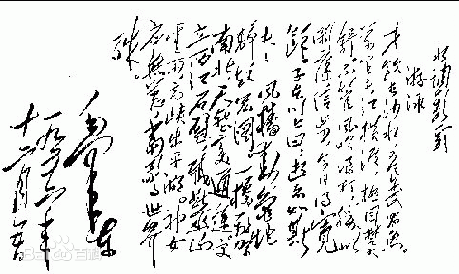 水调歌头
游泳
才饮长沙水，又食武昌鱼。
万里长江横渡，极目楚天
舒。不管风吹浪打，胜似
闲庭信步，今日得宽
馀。子在川上曰：逝者如斯
夫！风樯动，龟蛇
静，起宏图。一桥飞架
南北，天堑变通途。更
立西江石壁，截断巫山
云雨，高峡出平湖。神女
应无恙，当惊世界
殊。
毛泽东
一九五六年
十二月五日
Bai百科